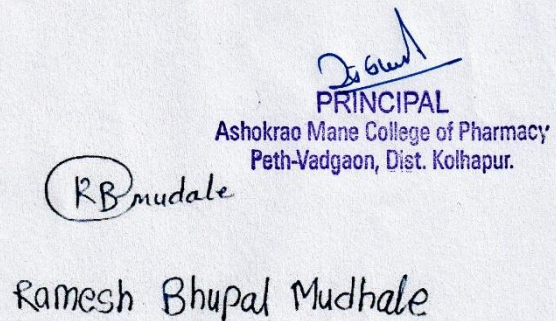 PRINCIPAL
Ashokrao Mane College of Pharmacy
Peth-Vadgaon, Dist. Kolhapur.
RBmudale
Ramesh Bhupal Mudhale